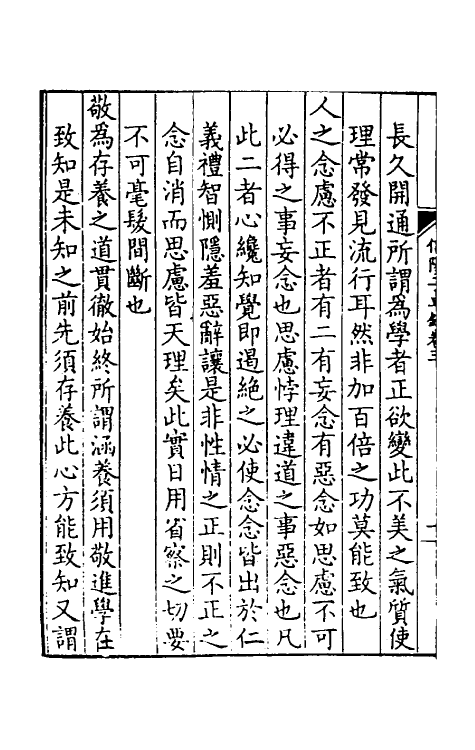 長久開通所謂為學者正欲變此不美之氣質使
理常發見流行耳然非加百倍之功莫能致也
人之念慮不正者有二有妄念有惡念如思慮不可
必得之事妄念也思慮悖理違道之事惡念也凡
此二者心纔知覺即遏絶之必使念念皆出於仁
義禮智惻隱羞惡辭讓是非性情之正則不正之
念自消而思慮皆天理矣此實日用省察之切要
不可毫髮間斷也
敬為存養之道貫徹始終所謂涵養須用敬進學在
致知是未知之前先須存養此心方能致知又謂